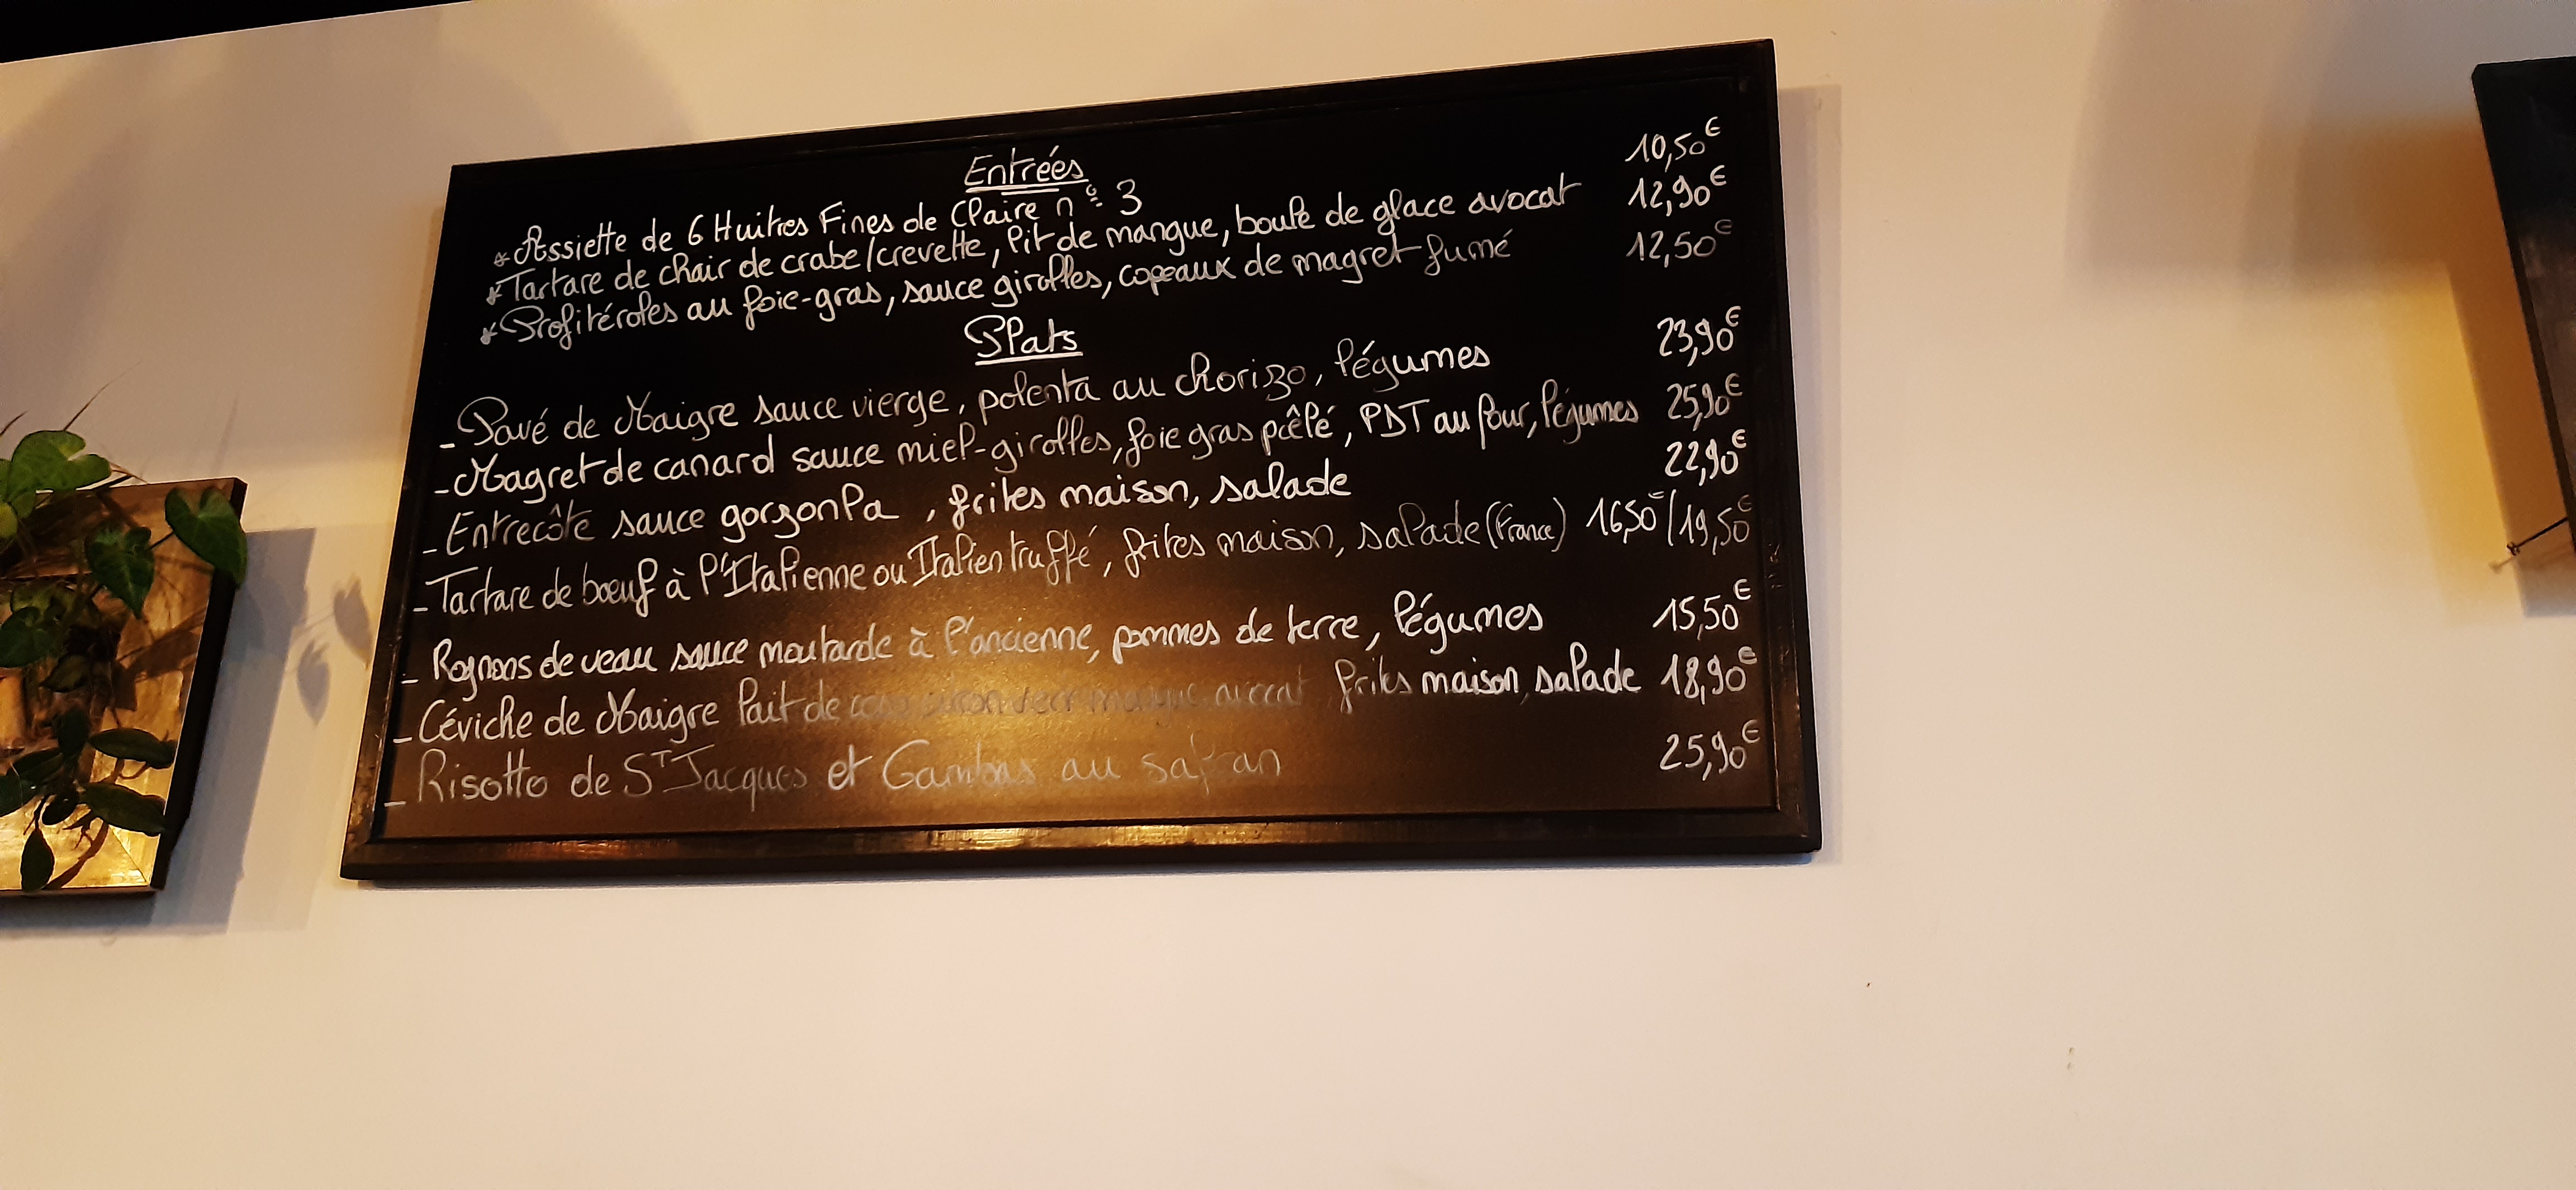 Entrées
* Assiette de 6 Huitres Fines de Claire n° 3 10,50€
* Tartare de chair de crabe/crevette, lit de mangue, boule de glace avocat 12,90€
* Profitéroles au foie-gras, sauce girolles, copeaux de magret fumé 12,50€
Plats
- Pavé de Maigre sauce vierge, polenta au chorizo, légumes 23,90€
- Magret de canard sauce miel-girolles, foie gras poêlé, PDT au four, légumes 25,90€
- Entrecôte sauce gorgonla, frites maison, salade 22,90€
- Tartare de boeuf à l'Italienne ou Italien truffé, frites maison, salade (France) 16,50€/19,50€
- Rognons de veau sauce moutarde à l'ancienne, pommes de terre, légumes 15,50€
- Céviche de Maigre lait de coco citron vert mangue avocat frites maison, salade 18,90€
- Risotto de ST Jacques et Gambas au safran 25,90€